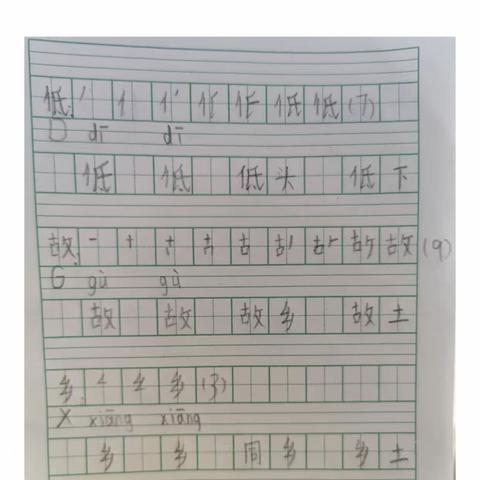 低: 丿 亻 亻 仾 低 低 低 (7)
D dī dī
低 低 低头 低下
故: 一 十 古 古 古 故 故 故 故 (9)
G gù gù
故 故 故乡 故土
乡: 𠃋 乡 乡 (3)
X xiāng xiāng
乡 乡 同乡 乡土